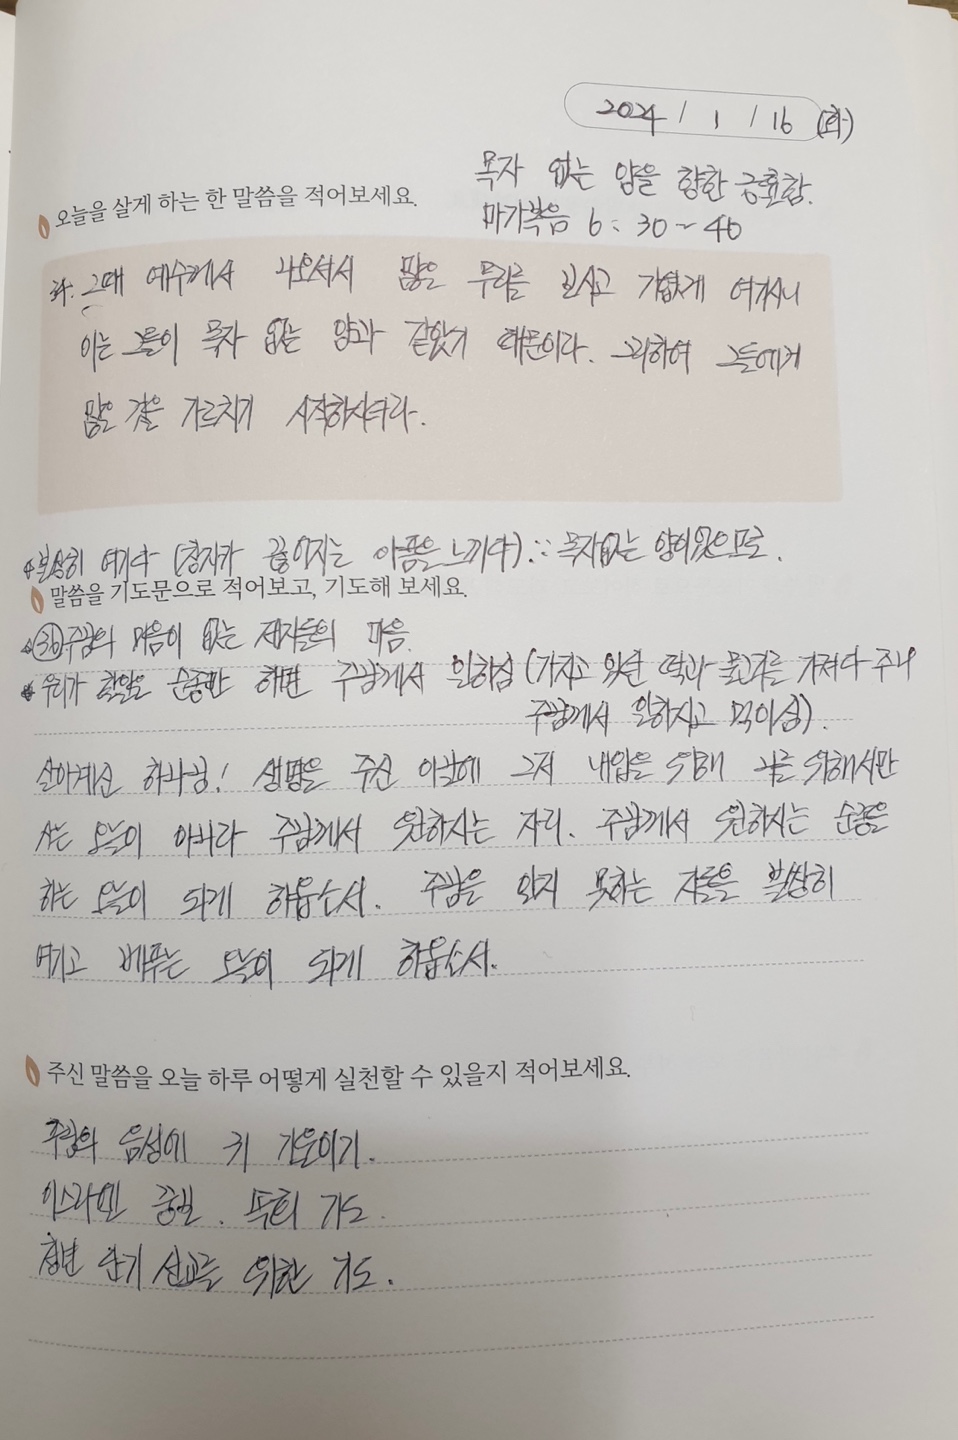 2024 / 1 / 16 (화)
목자 없는 양을 향한 긍휼함.
마가복음 6 : 30 ~ 40
오늘을 살게 하는 한 말씀을 적어보세요.
34. 그때 예수께서 나오셔서 많은 무리를 보시고 가엽게 여기시니
이는 그들이 목자 없는 양과 같았기 때문이라. 그리하여 그들에게
많은 것을 가르치기 시작하시더라.
불쌍히 여기다 (창자가 끊어지는 아픔을 느끼다) ∵ 목자없는 양이었으므로.
말씀을 기도문으로 적어보고, 기도해 보세요.
36 주님의 마음이 없는 제자들의 마음.
우리가 할일은 순종만 하면 주님께서 일하심 (가지고 있던 떡과 물고기를 가져다 주니
주님께서 일하시고 먹이심).
살아계신 하나님! 생명을 주신 이날에 그저 내입을 위해 나를 위해서만
사는 오늘이 아니라 주님께서 원하시는 자리. 주님께서 원하시는 순종을
하는 오늘이 되게 하옵소서. 주님을 알지 못하는 자들을 불쌍히
여기고 베푸는 오늘이 되게 하옵소서.
주신 말씀을 오늘 하루 어떻게 실천할 수 있을지 적어보세요.
주님의 음성에 귀 기울이기.
이스라엘 중보. 목회 기도.
청년 단기 선교를 위한 기도.